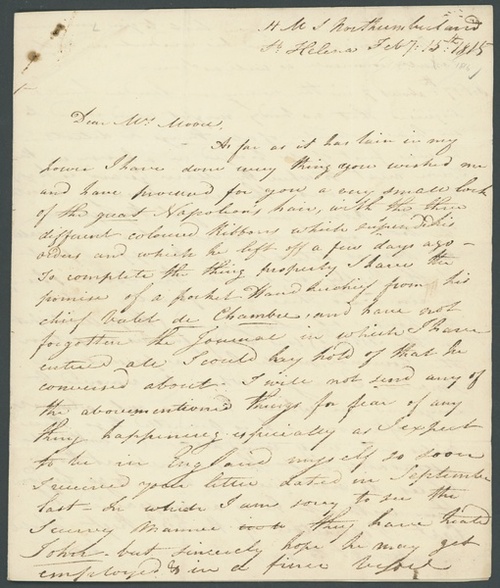 H M S Northumberland
St Helena Feby. 15th 1815
Dear Mrs Moore,
As far as it has lain in my
power I have done every thing you wished me
and have procured for you a very small lock
of the great Napoleons hair, with the three
different coloured Ribbons which suspended his
orders and which he left off a few days ago -
To complete the thing properly I have the
promise of a pocket Handkerchief from his
chief Valet de Chambre, and have not
forgotten the Journal in which I have
entered all I could lay hold of that he
conversed about. I will not send any of
the abovementioned things for fear of any
thing happening especially as I expect
to be in England myself so soon
I received your letter dated in September
last - In which I am sorry to see the
scurvy manner they have treated
John - but sincerely hope he may get
employed & in a finer Vessel